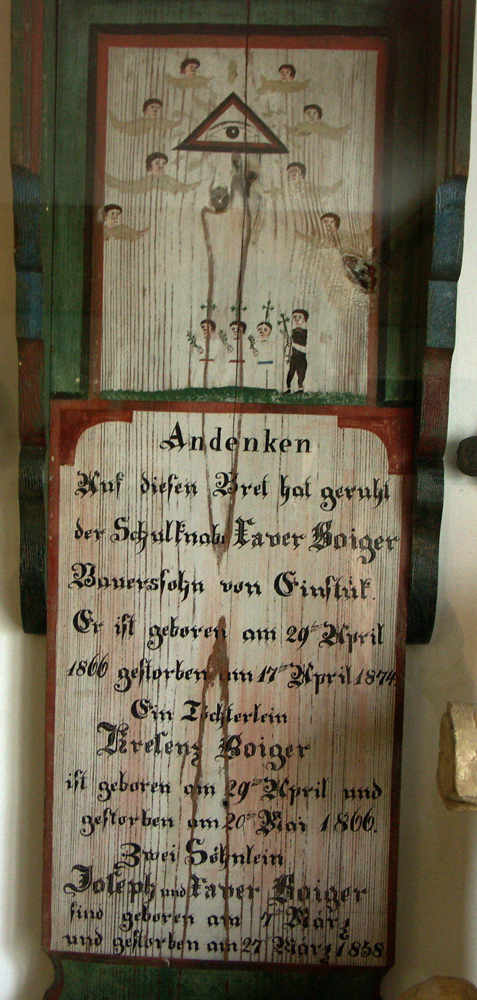 Andenken
Auf diesen Bret hat geruht
der Schulknab Xaver Boiger
Bauerssohn von Einstük.
Er ist geboren am 29ᵗᵉⁿ April
1866 gestorben am 17ᵗᵉⁿ April 1874.
Ein Töchterlein
Kresenz Boiger
ist geboren am 29ᵗᵉⁿ April und
gestorben am 20ᵗᵉⁿ Mai 1866.
Zwei Söhnlein
Joseph und Xaver Boiger
sind geboren am 7ᵗᵉⁿ März
und gestorben am 27 März 1858